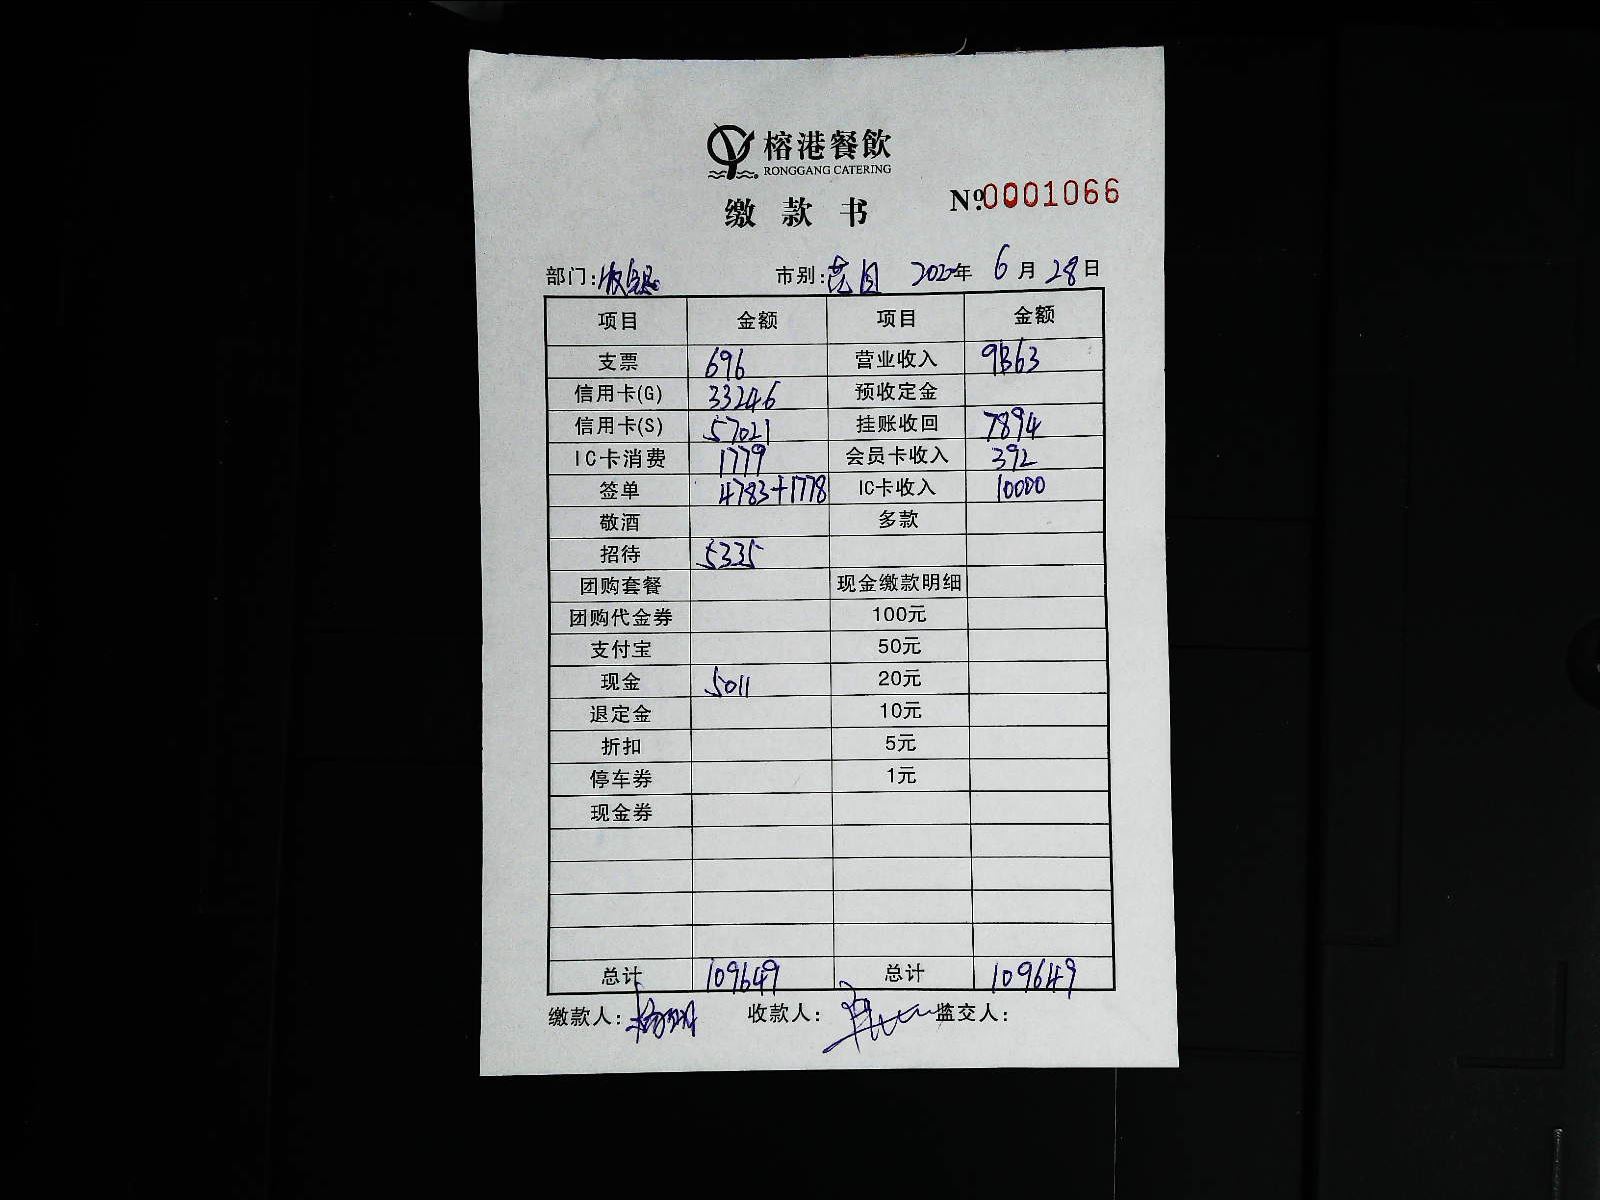 榕港餐飲
RONGGANG CATERING
缴款书 Nº 0001066
部门:收银 市别: 2020年 6月 28日
项目 金额 项目 金额
支票 696 营业收入 91363
信用卡(G) 33246 预收定金
信用卡(S) 57021 挂账收回 7894
IC卡消费 1779 会员卡收入 392
签单 4783+1778 IC卡收入 10000
敬酒 多款
招待 5335
团购套餐 现金缴款明细
团购代金券 100元
支付宝 50元
现金 5011 20元
退定金 10元
折扣 5元
停车券 1元
现金券
总计 109649 总计 109649
缴款人: 收款人: 监交人: